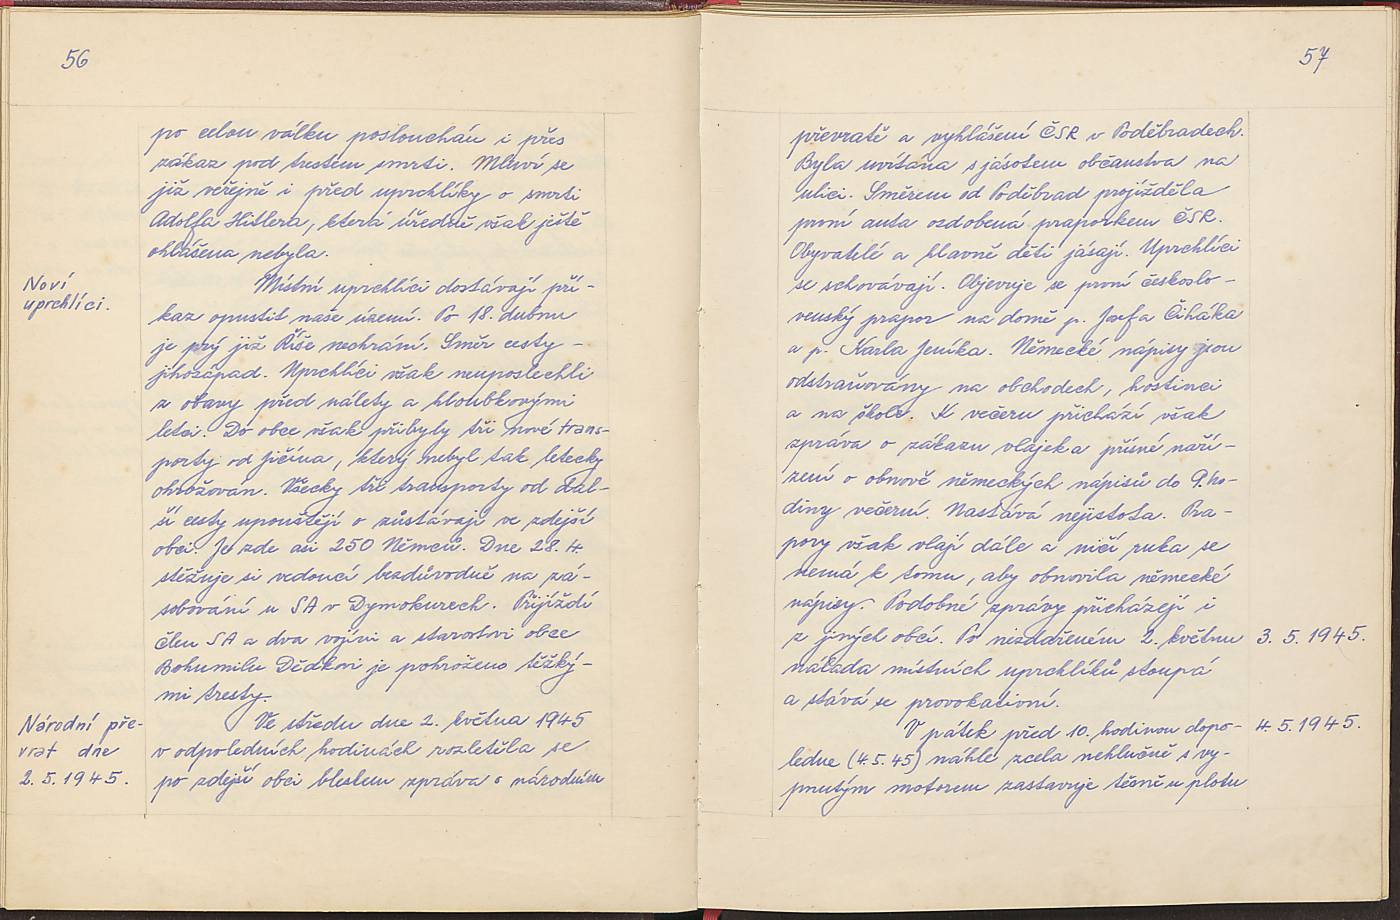 56
po celou válku poslouchán i přes
zákaz pod trestem smrti. Mluví se
již veřejně i před uprchlíky o smrti
Adolfa Hitlera, která úředně však ještě
ohlášena nebyla.
Noví
uprchlíci.
Místní uprchlíci dostávají pří-
kaz opustit naše území. Po 18. dubnu
je prý již Říše nechrání. Směr cesty -
jihozápad. Uprchlíci však neuposlechli
z obavy před nálety a hloubkovými
letci. Do obce však přibyly tři nové trans-
porty od Jičína, který nebyl tak letecky
ohrožován. Všecky tři transporty od dal-
ší cesty upouštějí a zůstávají ve zdejší
obci. Je zde asi 250 Němců. Dne 28. 4.
stěžuje si vedoucí bezdůvodně na zá-
sobování u SA v Dymokurech. Přijíždí
člen SA a dva vojíni a starostovi obce
Bohumilu Dědkovi je pohroženo těžký-
mi tresty.
Národní pře-
vrat dne
2. 5. 1945.
Ve středu dne 2. května 1945
v odpoledních hodinách rozletěla se
po zdejší obci bleskem zpráva o národním
57
převratě a vyhlášení ČSR v Poděbradech.
Byla uvítána s jásotem občanstva na
ulici. Směrem od Poděbrad projížděla
první auta ozdobená praporkem ČSR.
Obyvatelé a hlavně děti jásají. Uprchlíci
se schovávají. Objevuje se první českoslo-
venský prapor na domě p. Josefa Čiháka
a p. Karla Jeníka. Německé nápisy jsou
odstraňovány na obchodech, hostinci
a na škole. K večeru přichází však
zpráva o zákazu vlájek a přísné naří-
zení o obnově německých nápisů do 9. ho-
diny večerní. Nastává nejistota. Pra-
pory však vlají dále a ničí ruka se
nemá k tomu, aby obnovila německé
nápisy. Podobné zprávy přicházejí i
z jiných obcí. Po nezdařeném 2. květnu
3. 5. 1945.
nálada místních uprchlíků stoupá
a stává se provokativní.
V pátek před 10. hodinou dopo-
4. 5. 1945.
ledne (4. 5. 45) náhle zcela nehlučně s vy-
pnutým motorem zastavuje těsně u plotu